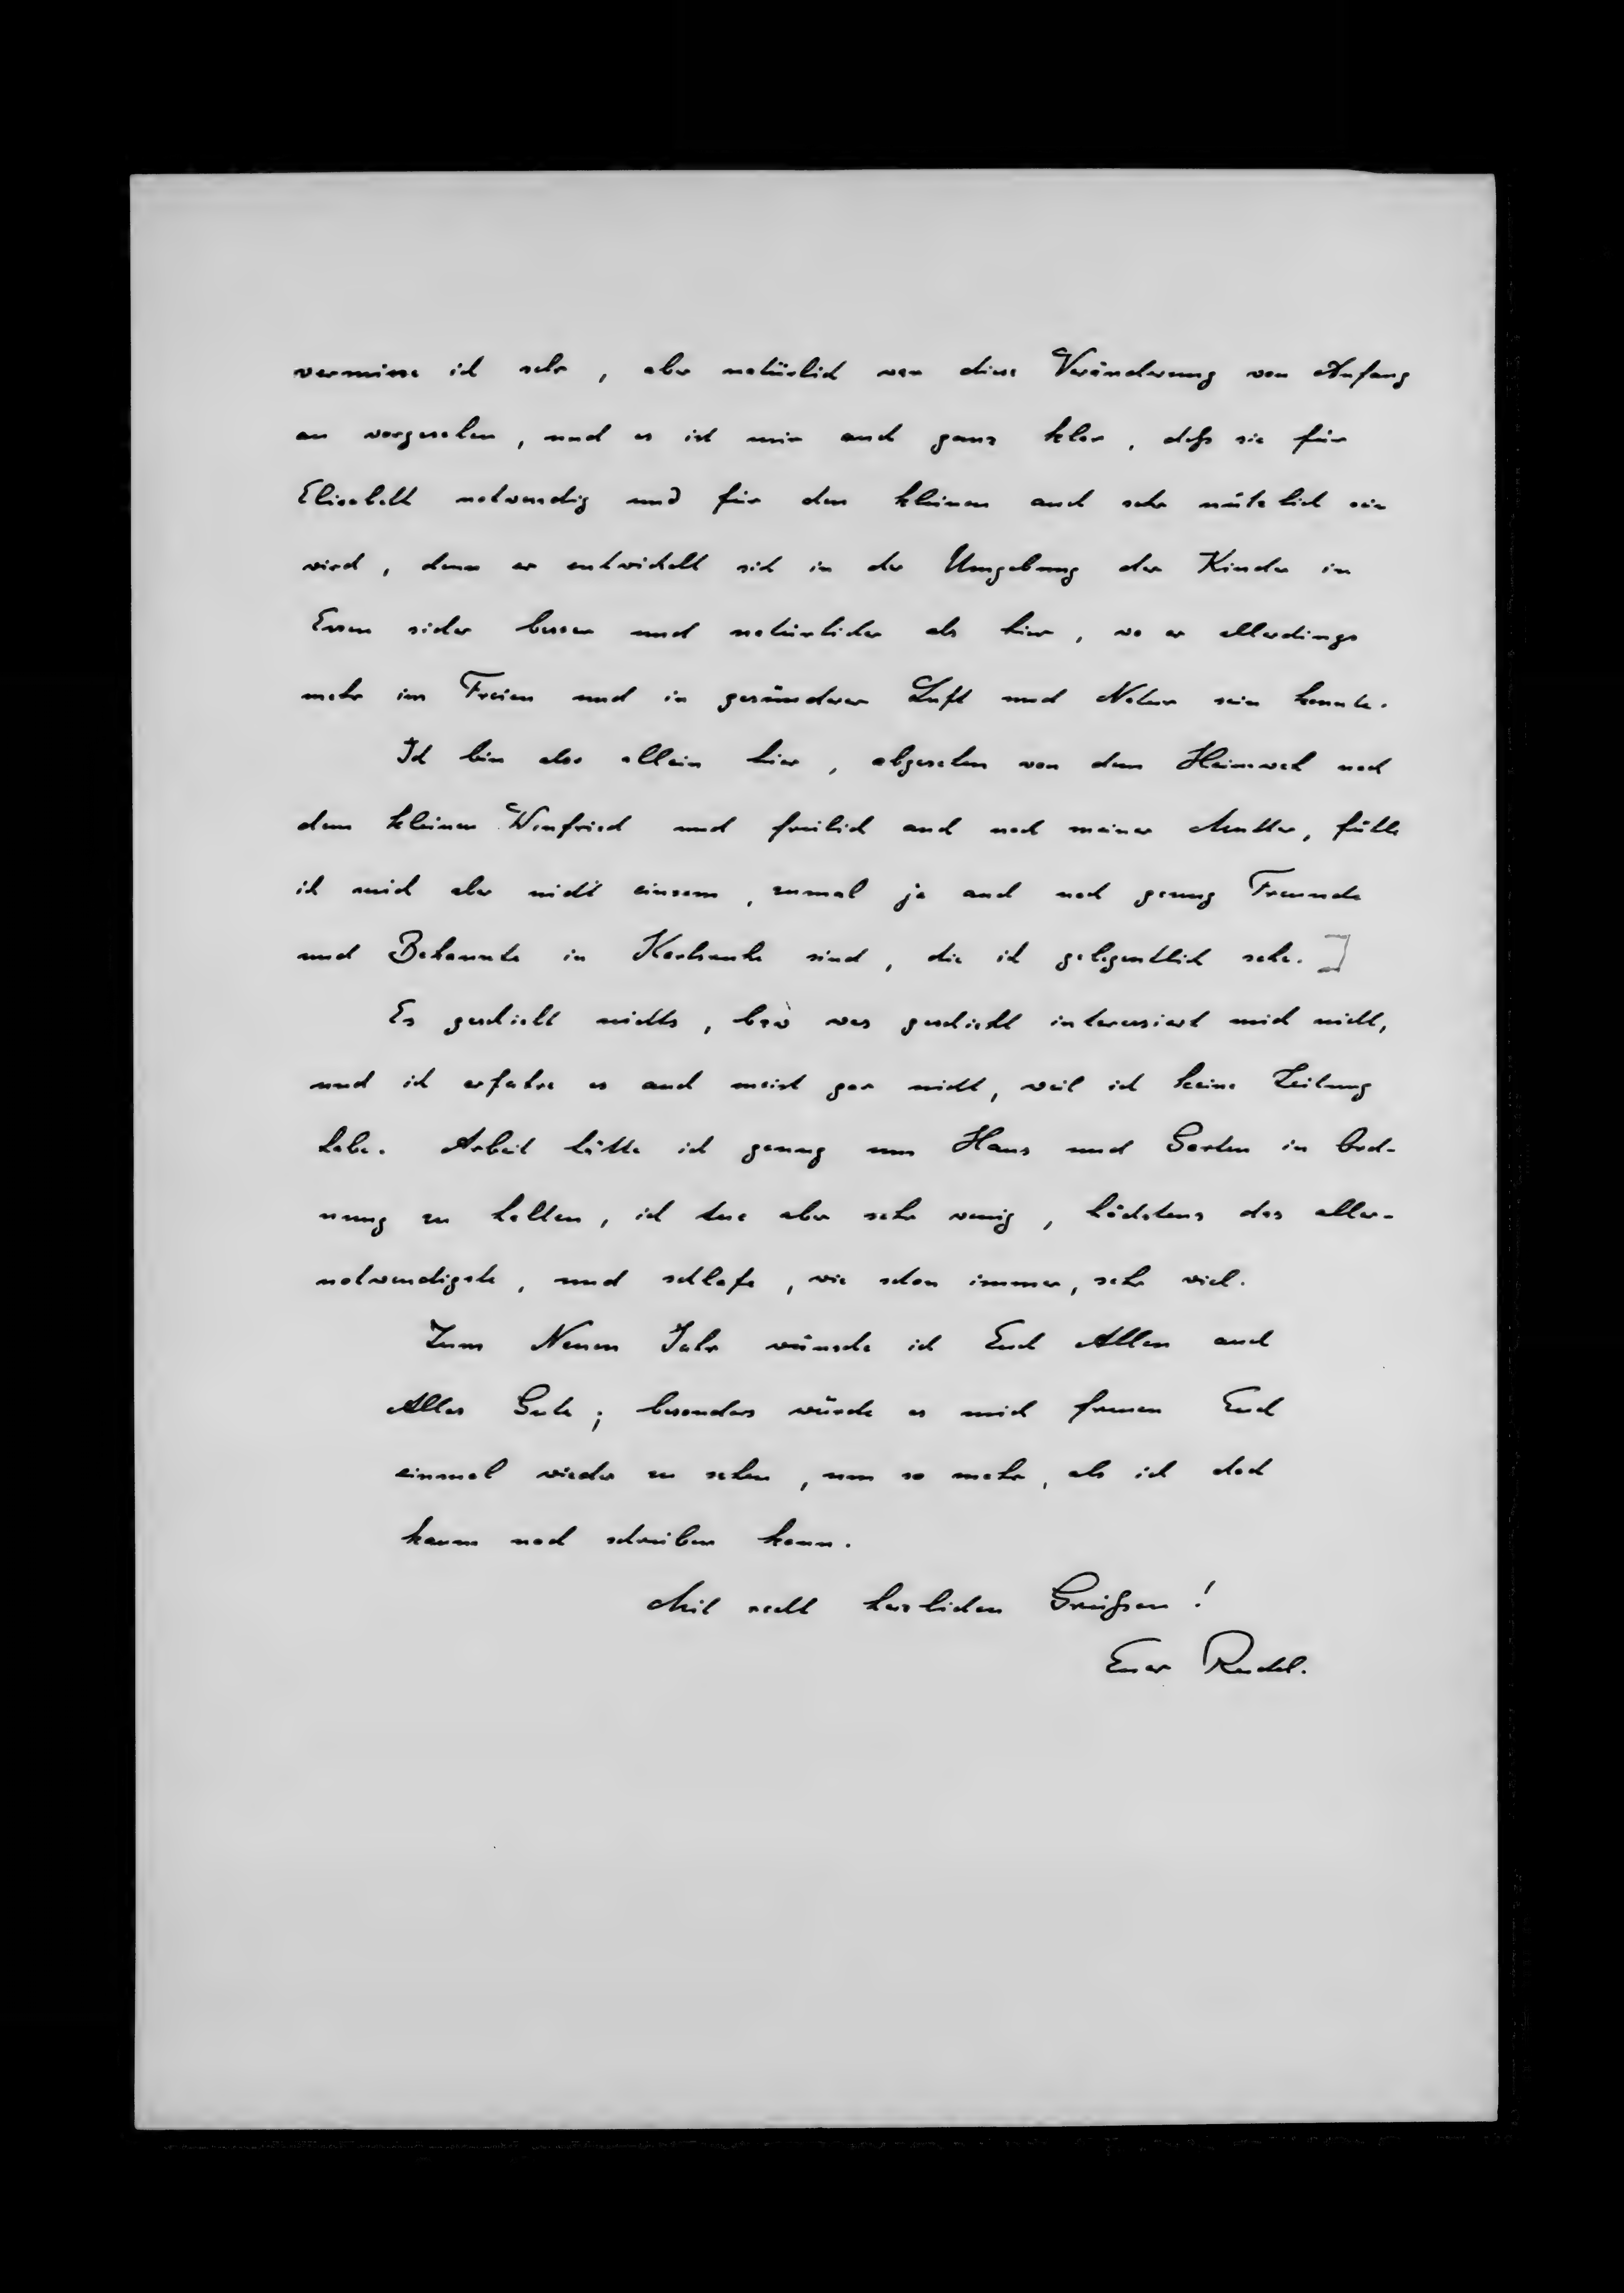 vermisse ich sehr, aber natürlich war diese Veränderung von Anfang
an vorgesehen, und es ist mir auch ganz klar, daß sie für
Elisabeth notwendig und für den kleinen auch sehr nützlich sein
wird, denn er entwickelt sich in der Umgebung der Kinder in
Essen sicher besser und natürlicher als hier, wo er allerdings
mehr im Freien und in gesünderer Luft und Natur sein konnte.
Ich bin also allein hier, abgesehen von dem Heimweh nach
dem kleinen Winfried und freilich auch nach meiner Mutter, fühle
ich mich aber nicht einsam, zumal ja auch noch genug Freunde
und Bekannte in Karlsruhe sind, die ich gelegentlich sehe.]
Es geschieht nichts, bzw was geschieht interessiert mich nicht,
und ich erfahre es auch meist gar nicht, weil ich keine Zeitung
habe. Arbeit hätte ich genug um Haus und Garten in Ord-
nung zu halten, ich tue aber sehr wenig, höchstens das aller-
notwendigste, und schlafe, wie schon immer, sehr viel.
Zum Neuen Jahr wünsche ich Euch Allen auch
Alles Gute; besonders würde es mich freuen Euch
einmal wieder zu sehen, um so mehr, als ich doch
kaum noch schreiben kann.
Mit recht herzlichen Grüßen!
Euer Rudel.